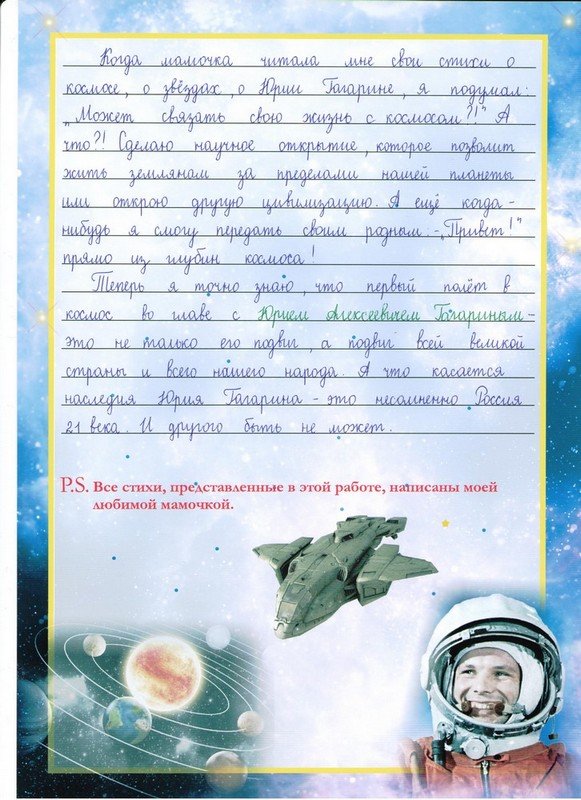 Когда мамочка читала мне свои стихи о
космосе, о звёздах, о Юрии Гагарине, я подумал:
„Может связать свою жизнь с космосом?!" А
что?! Сделаю научное открытие, которое позволит
жить землянам за пределами нашей планеты
или открою другую цивилизацию. А ещё когда-
нибудь я смогу передать своим родным:-„Привет!"
прямо из глубин космоса!
Теперь я точно знаю, что первый полёт в
космос во главе с Юрием Алексеевичем Гагариным-
это не только его подвиг, а подвиг всей великой
страны и всего нашего народа. А что касается
наследия Юрия Гагарина - это несомненно Россия
21 века. И другого быть не может.
P.S. Все стихи, представленные в этой работе, написаны моей
любимой мамочкой.